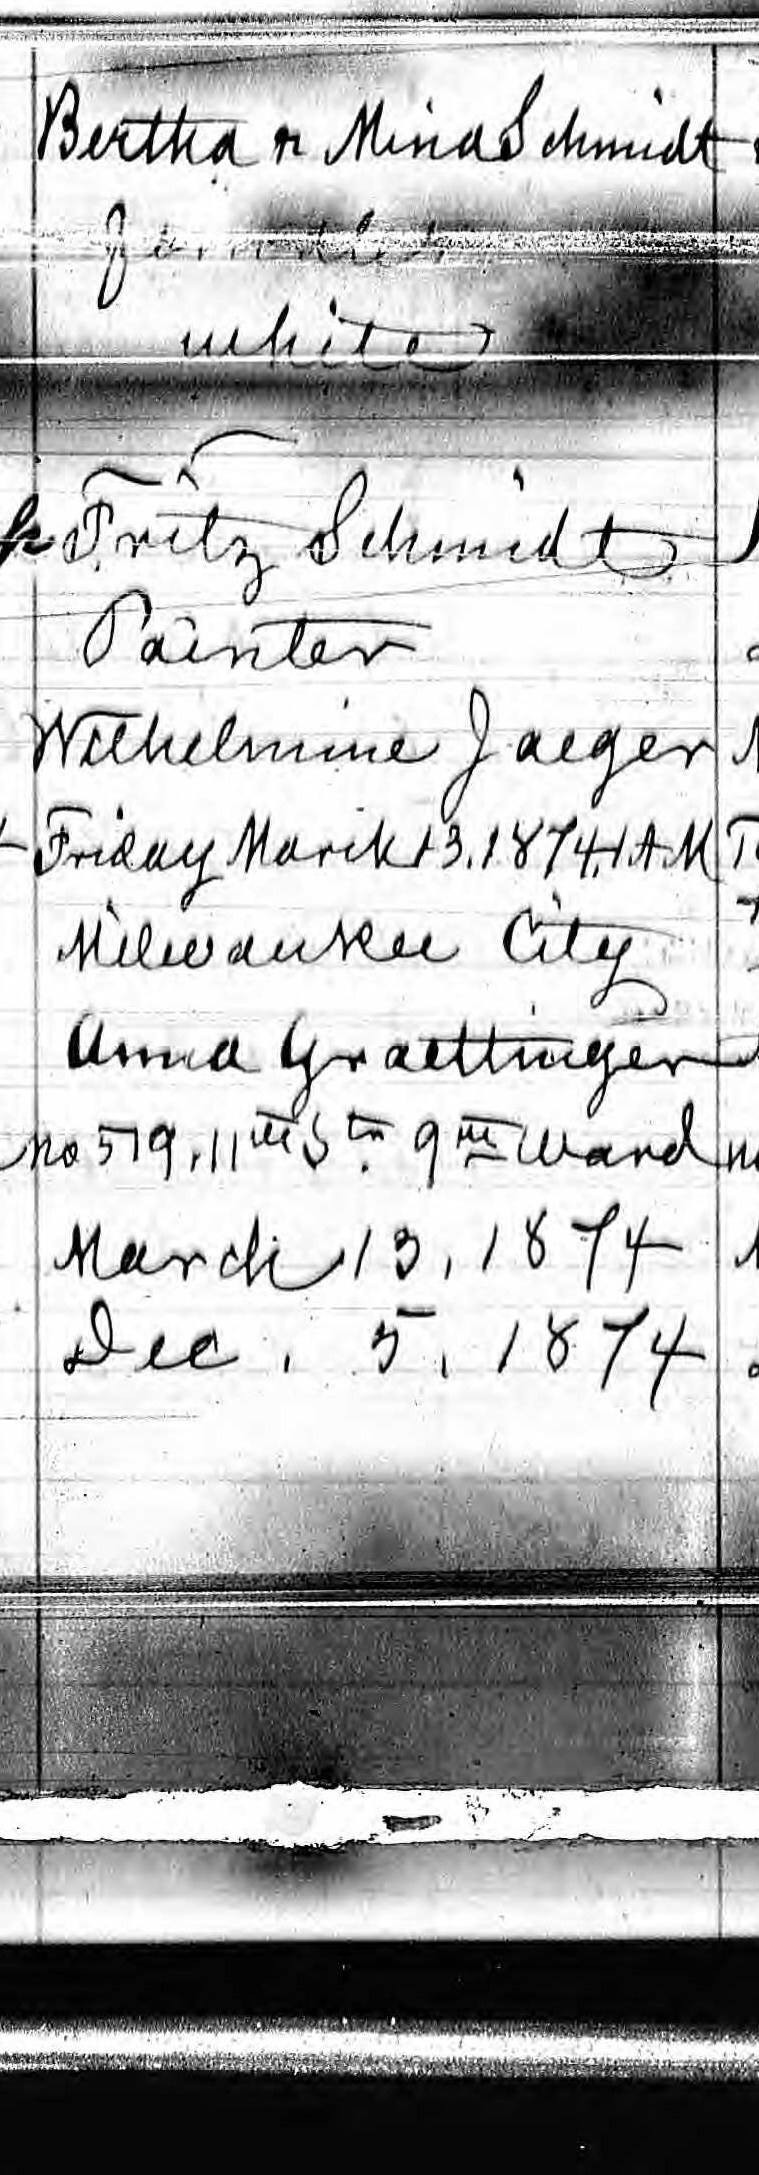 Bertha & Mina Schmidt
females
white
Fritz Schmidt
Painter
Wilhelmine Jaeger
Friday March 13. 1874, 1 A M
Milwaukee City
Anna Graettinger
no 519, 11th St. 9th Ward
March 13, 1874
Dec. 5, 1874